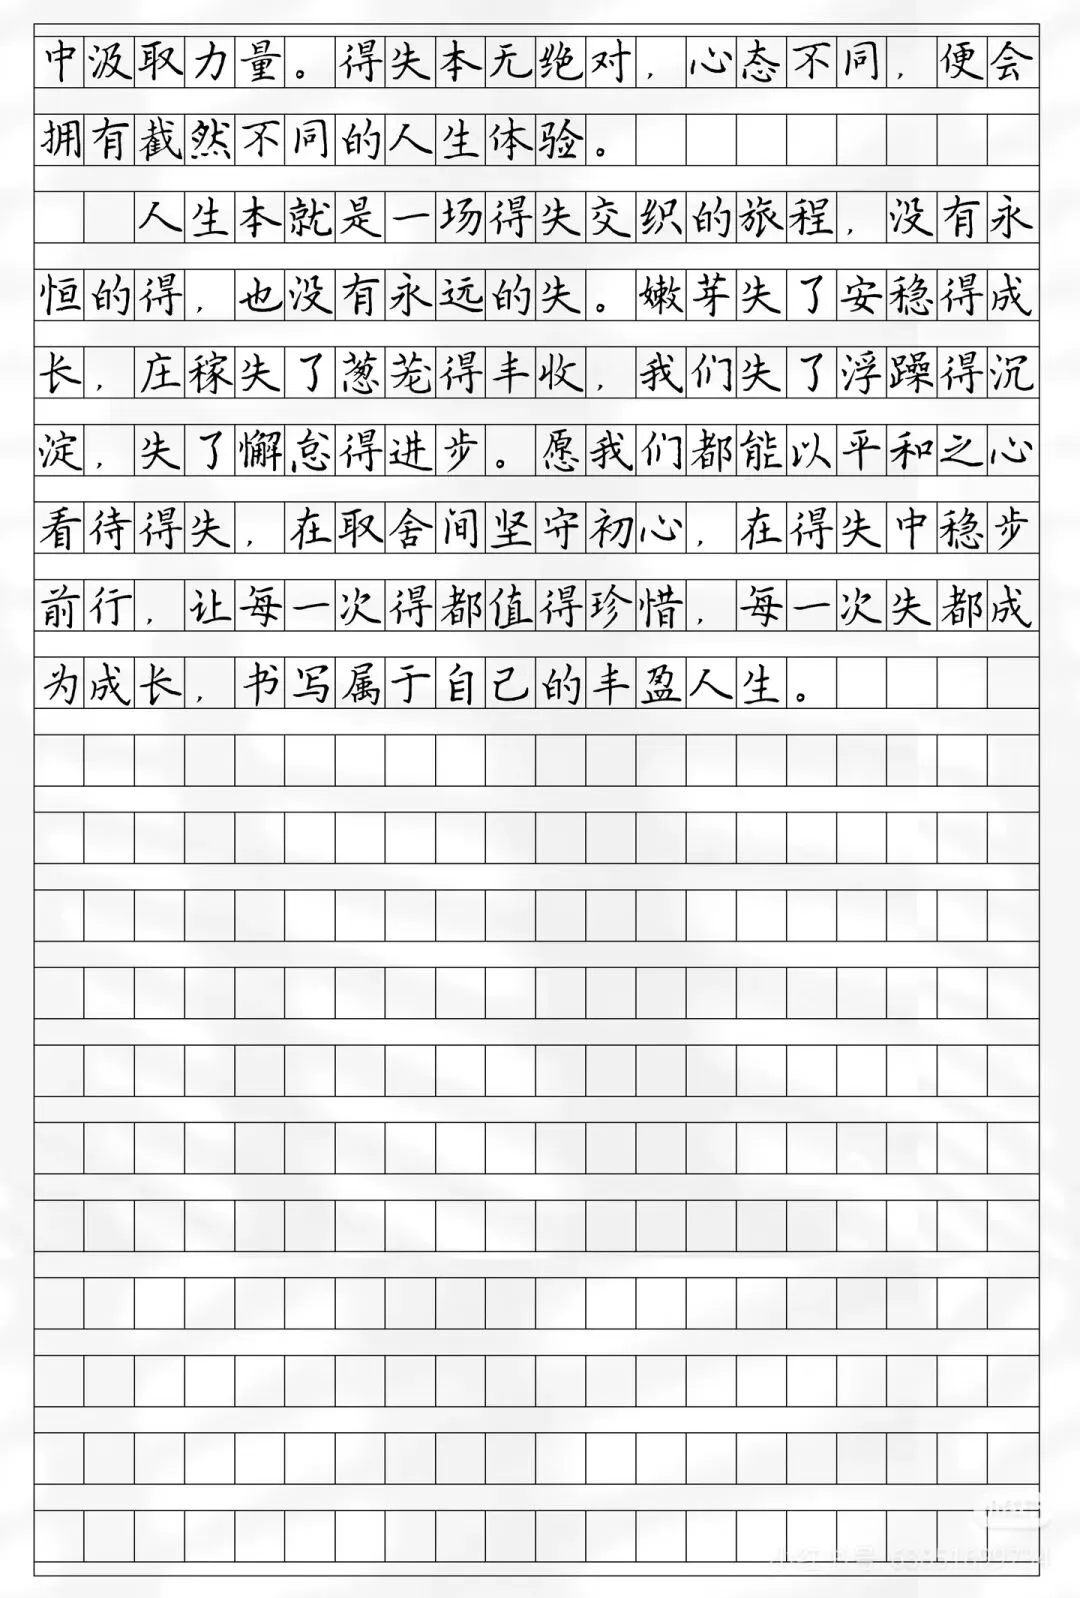 中汲取力量。得失本无绝对，心态不同，便会
拥有截然不同的人生体验。
人生本就是一场得失交织的旅程，没有永
恒的得，也没有永远的失。嫩芽失了安稳得成
长，庄稼失了葱茏得丰收，我们失了浮躁得沉
淀，失了懈怠得进步。愿我们都能以平和之心
看待得失，在取舍间坚守初心，在得失中稳步
前行，让每一次得都值得珍惜，每一次失都成
为成长，书写属于自己的丰盈人生。